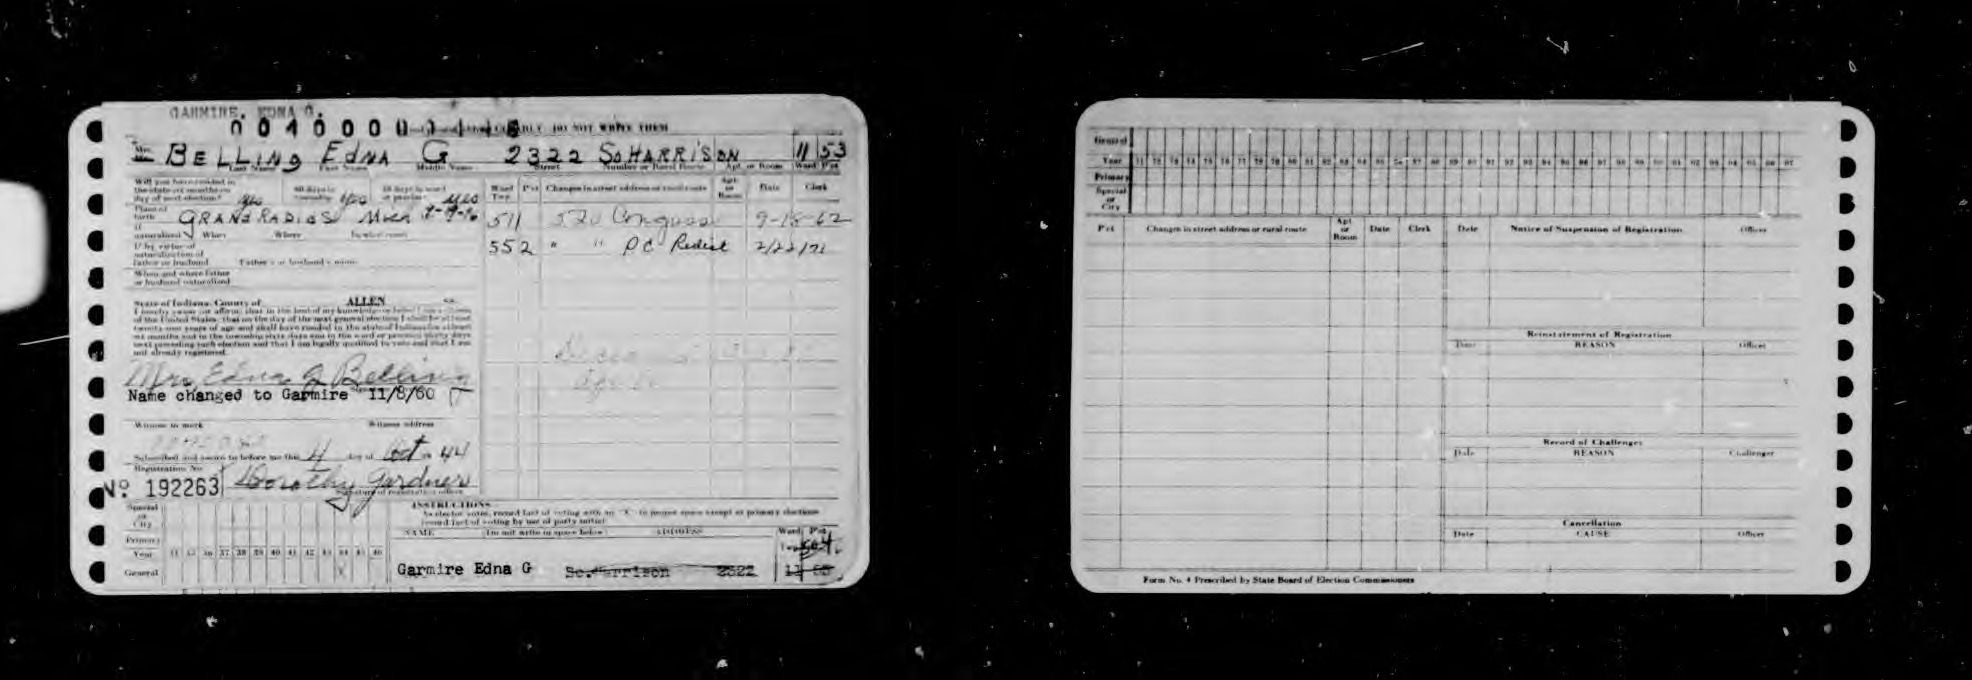 GARMIRE, EDNA G.
CLEARLY DO NOT WRITE THEM
Mrs. BELLING EDNA G 2322 SO HARRISON 11 53
Last Name First Name Middle Name Street Number or Rural Route Apt. or Room Ward Pct
Will you have resided in the state six months on day of next election? yes 60 days in township yes 30 days in ward or precinct yes
Ward Twp. Pct Changes in street address or rural route Apt. or Room Date Clerk
Place of birth GRAND RADIDS MICH
511 520 Congress 9-18-62
If naturalized When Where
552 " " PC Redist 2/22/71
If by virtue of naturalization of Father or husband Father's or husband's name
When and where Father or husband naturalized
State of Indiana, County of ALLEN ss.
I hereby swear (or affirm) that to the best of my knowledge or belief I am a citizen
of the United States; that on the day of the next general election I shall be at least
twenty-one years of age and shall have resided in the state of Indiana for at least
six months and in the township sixty days and in the ward or precinct thirty days
next preceding such election and that I am legally qualified to vote and that I am
not already registered.
Mrs. Edna G Belling
Name changed to Garmire 11/8/60
Witness to mark Witness address
Subscribed and sworn to before me this 4 day of Oct 44
Registration No.
No. 192263 Dorothy Gardner
Signature of registration officer
INSTRUCTIONS
As elector votes, record fact of voting with an "X" in proper space except at primary elections
record fact of voting by use of party initial
Special or City
Primary
Year 37 38 39 40 41 42 43 44 45 46
General X
NAME (Do not write in space below) ADDRESS Ward Pct
Garmire Edna G So. Harrison 2322
General
Year
Primary
Special or City
Pct Changes in street address or rural route Apt or Room Date Clerk Date Notice of Suspension of Registration Officer
Reinstatement of Registration
Date REASON Officer
Record of Challenges
Date REASON Challenger
Cancellation
Date CAUSE Officer
Form No. 4 Prescribed by State Board of Election Commissioners